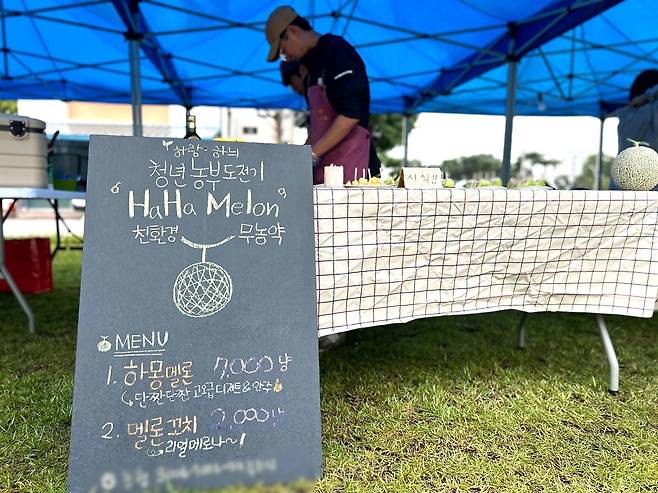 하랑·하늬
청년농부도전기
"HaHa Melon"
친환경 무농약
MENU
1. 하몽멜론 7,000냥
↳ 단짠단짠 고급 디저트&안주
2. 멜론꼬치 2,000냥
↳ 리얼메로나~!
시식